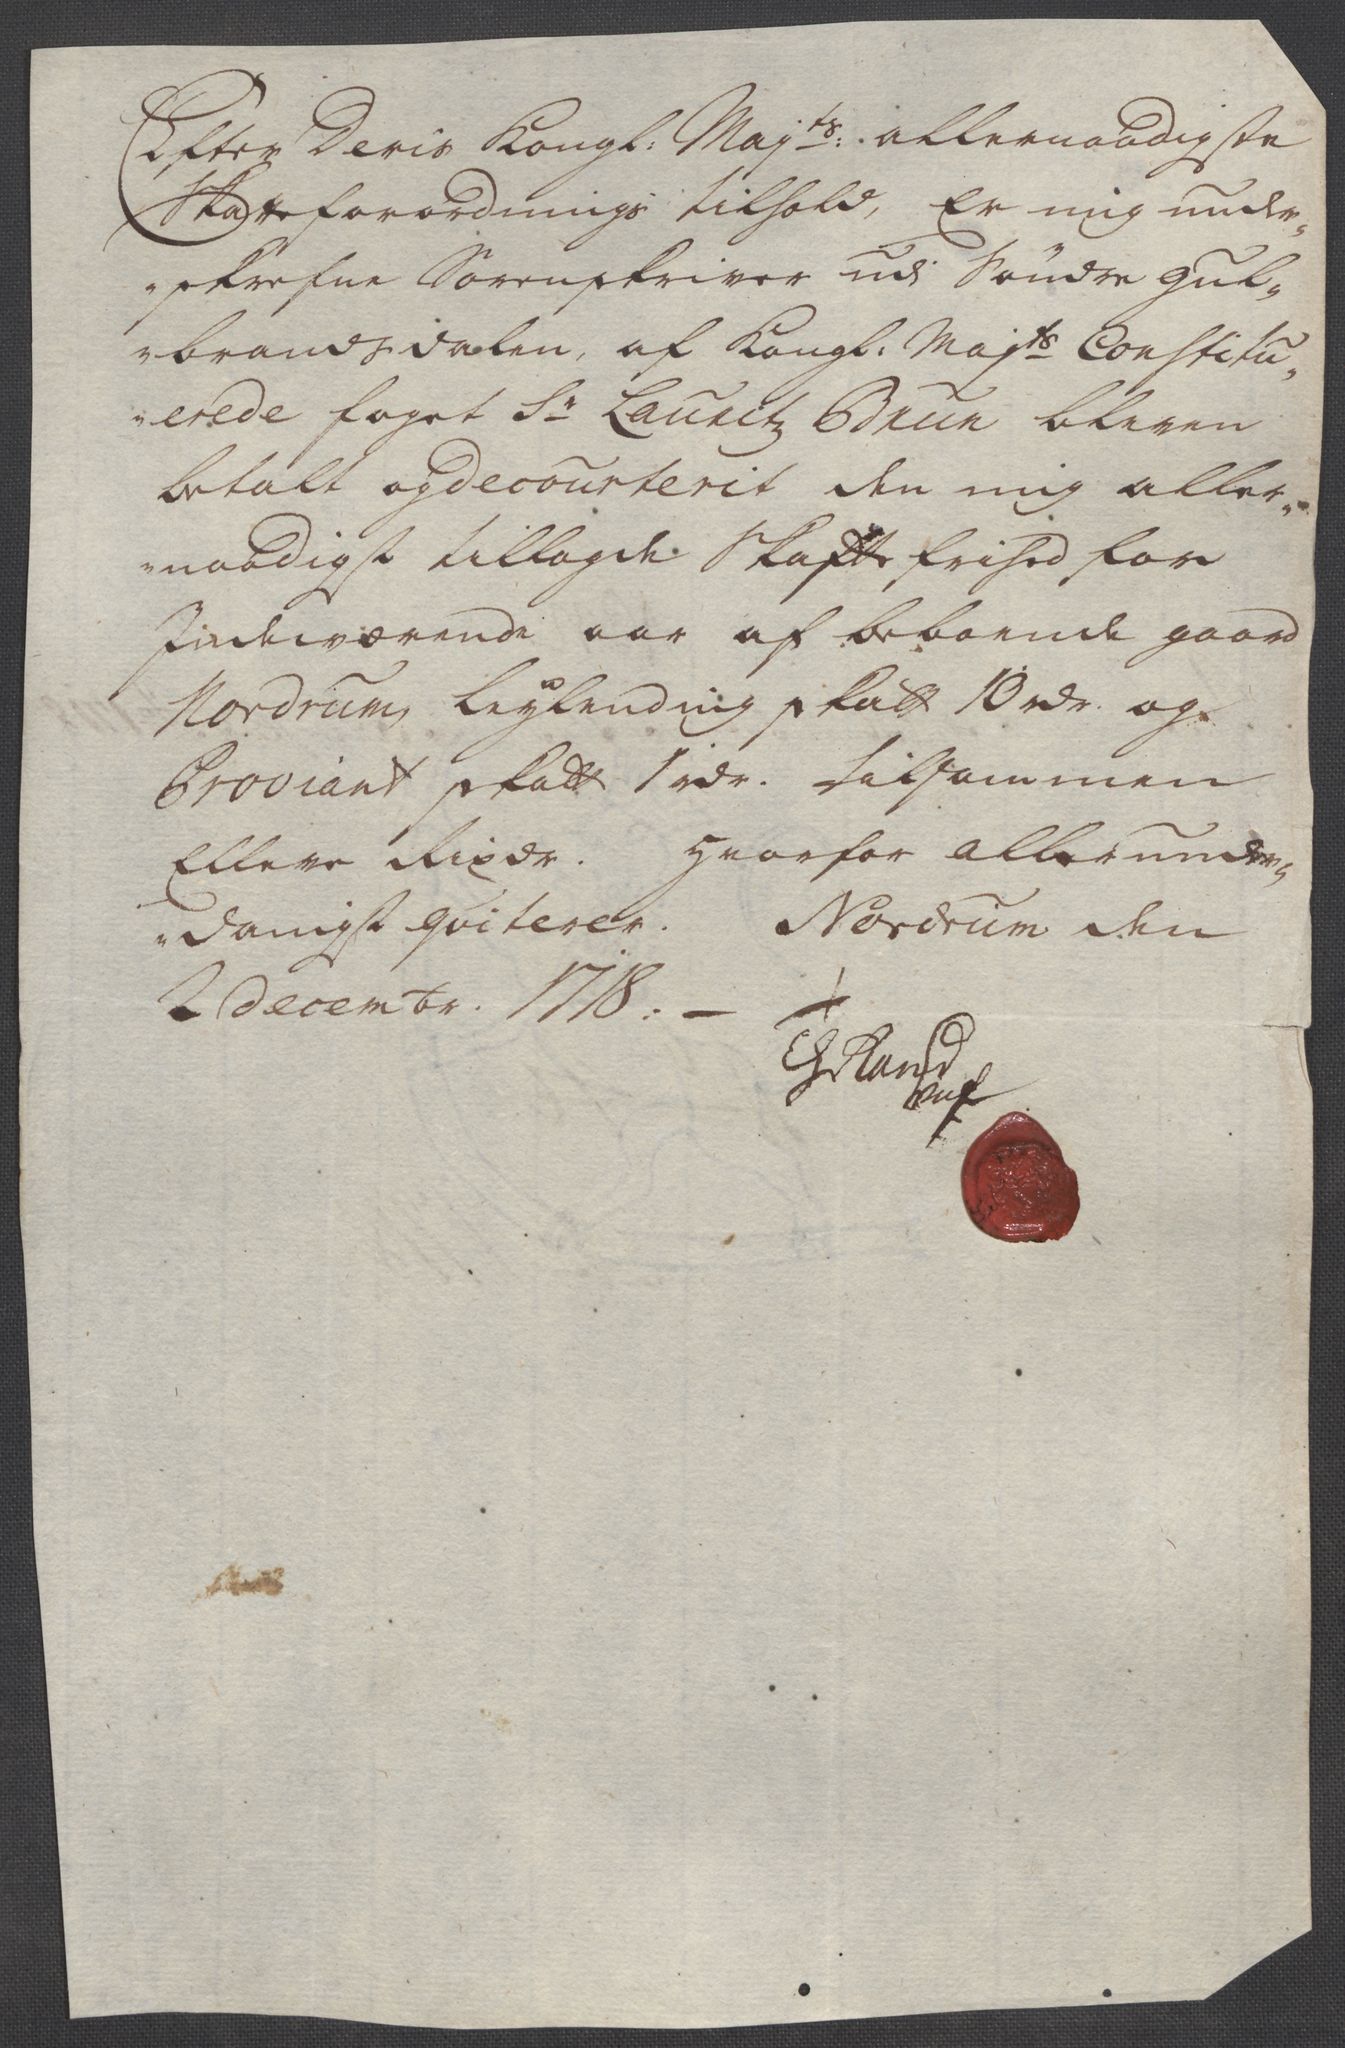 Efter Deris Kongl: Maj<sup>ts</sup>: allernaadigste
Skatteforordnings tilhold, Er mig under„
„skrefne Sorenskriver udi Søndre Gul„
„brandsdalen, af Kongl: Maj<sup>ts</sup> Constitu„
„erede foget S<sup>r</sup> Lauritz Brun bleven
betalt og decourterit den mig aller„
„naadigst tillagde Skatte frihed for
Indeværende aar af beboende gaard
Nordrum, leylending skatt 10 rdr. og
Proviant skatt 1 rdr. tilsammen
Elleve Rixdr. Hvorfor allerunder„
„danigst qviterer. Nordrum den
2 decembr. 1718. —